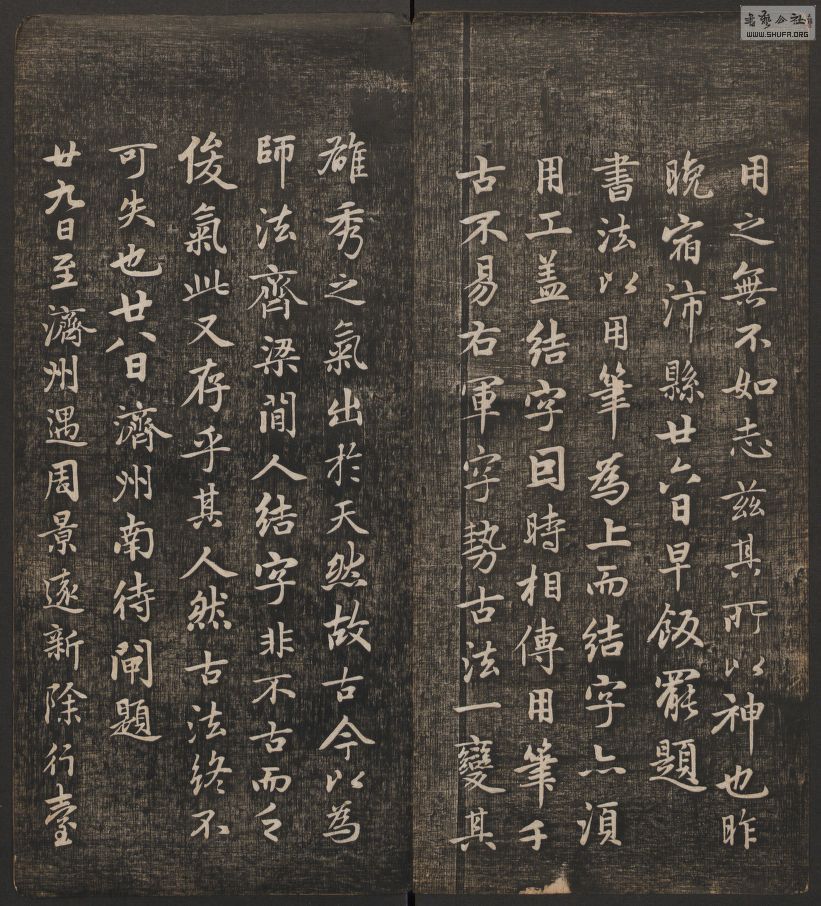 用之無不如志茲其所以神也昨
晚宿沛縣廿六日早飯罷題
書法以用筆為上而結字亦須
用工蓋結字因時相傳用筆千
古不易右軍字勢古法一變其
雄秀之氣出於天然故古今以為
師法齊梁間人結字非不古而乏
俊氣此又存乎其人然古法終不
可失也廿八日濟州南待閘題
廿九日至濟州遇周景遠新除行臺
書藝公社
WWW.SHUFA.ORG